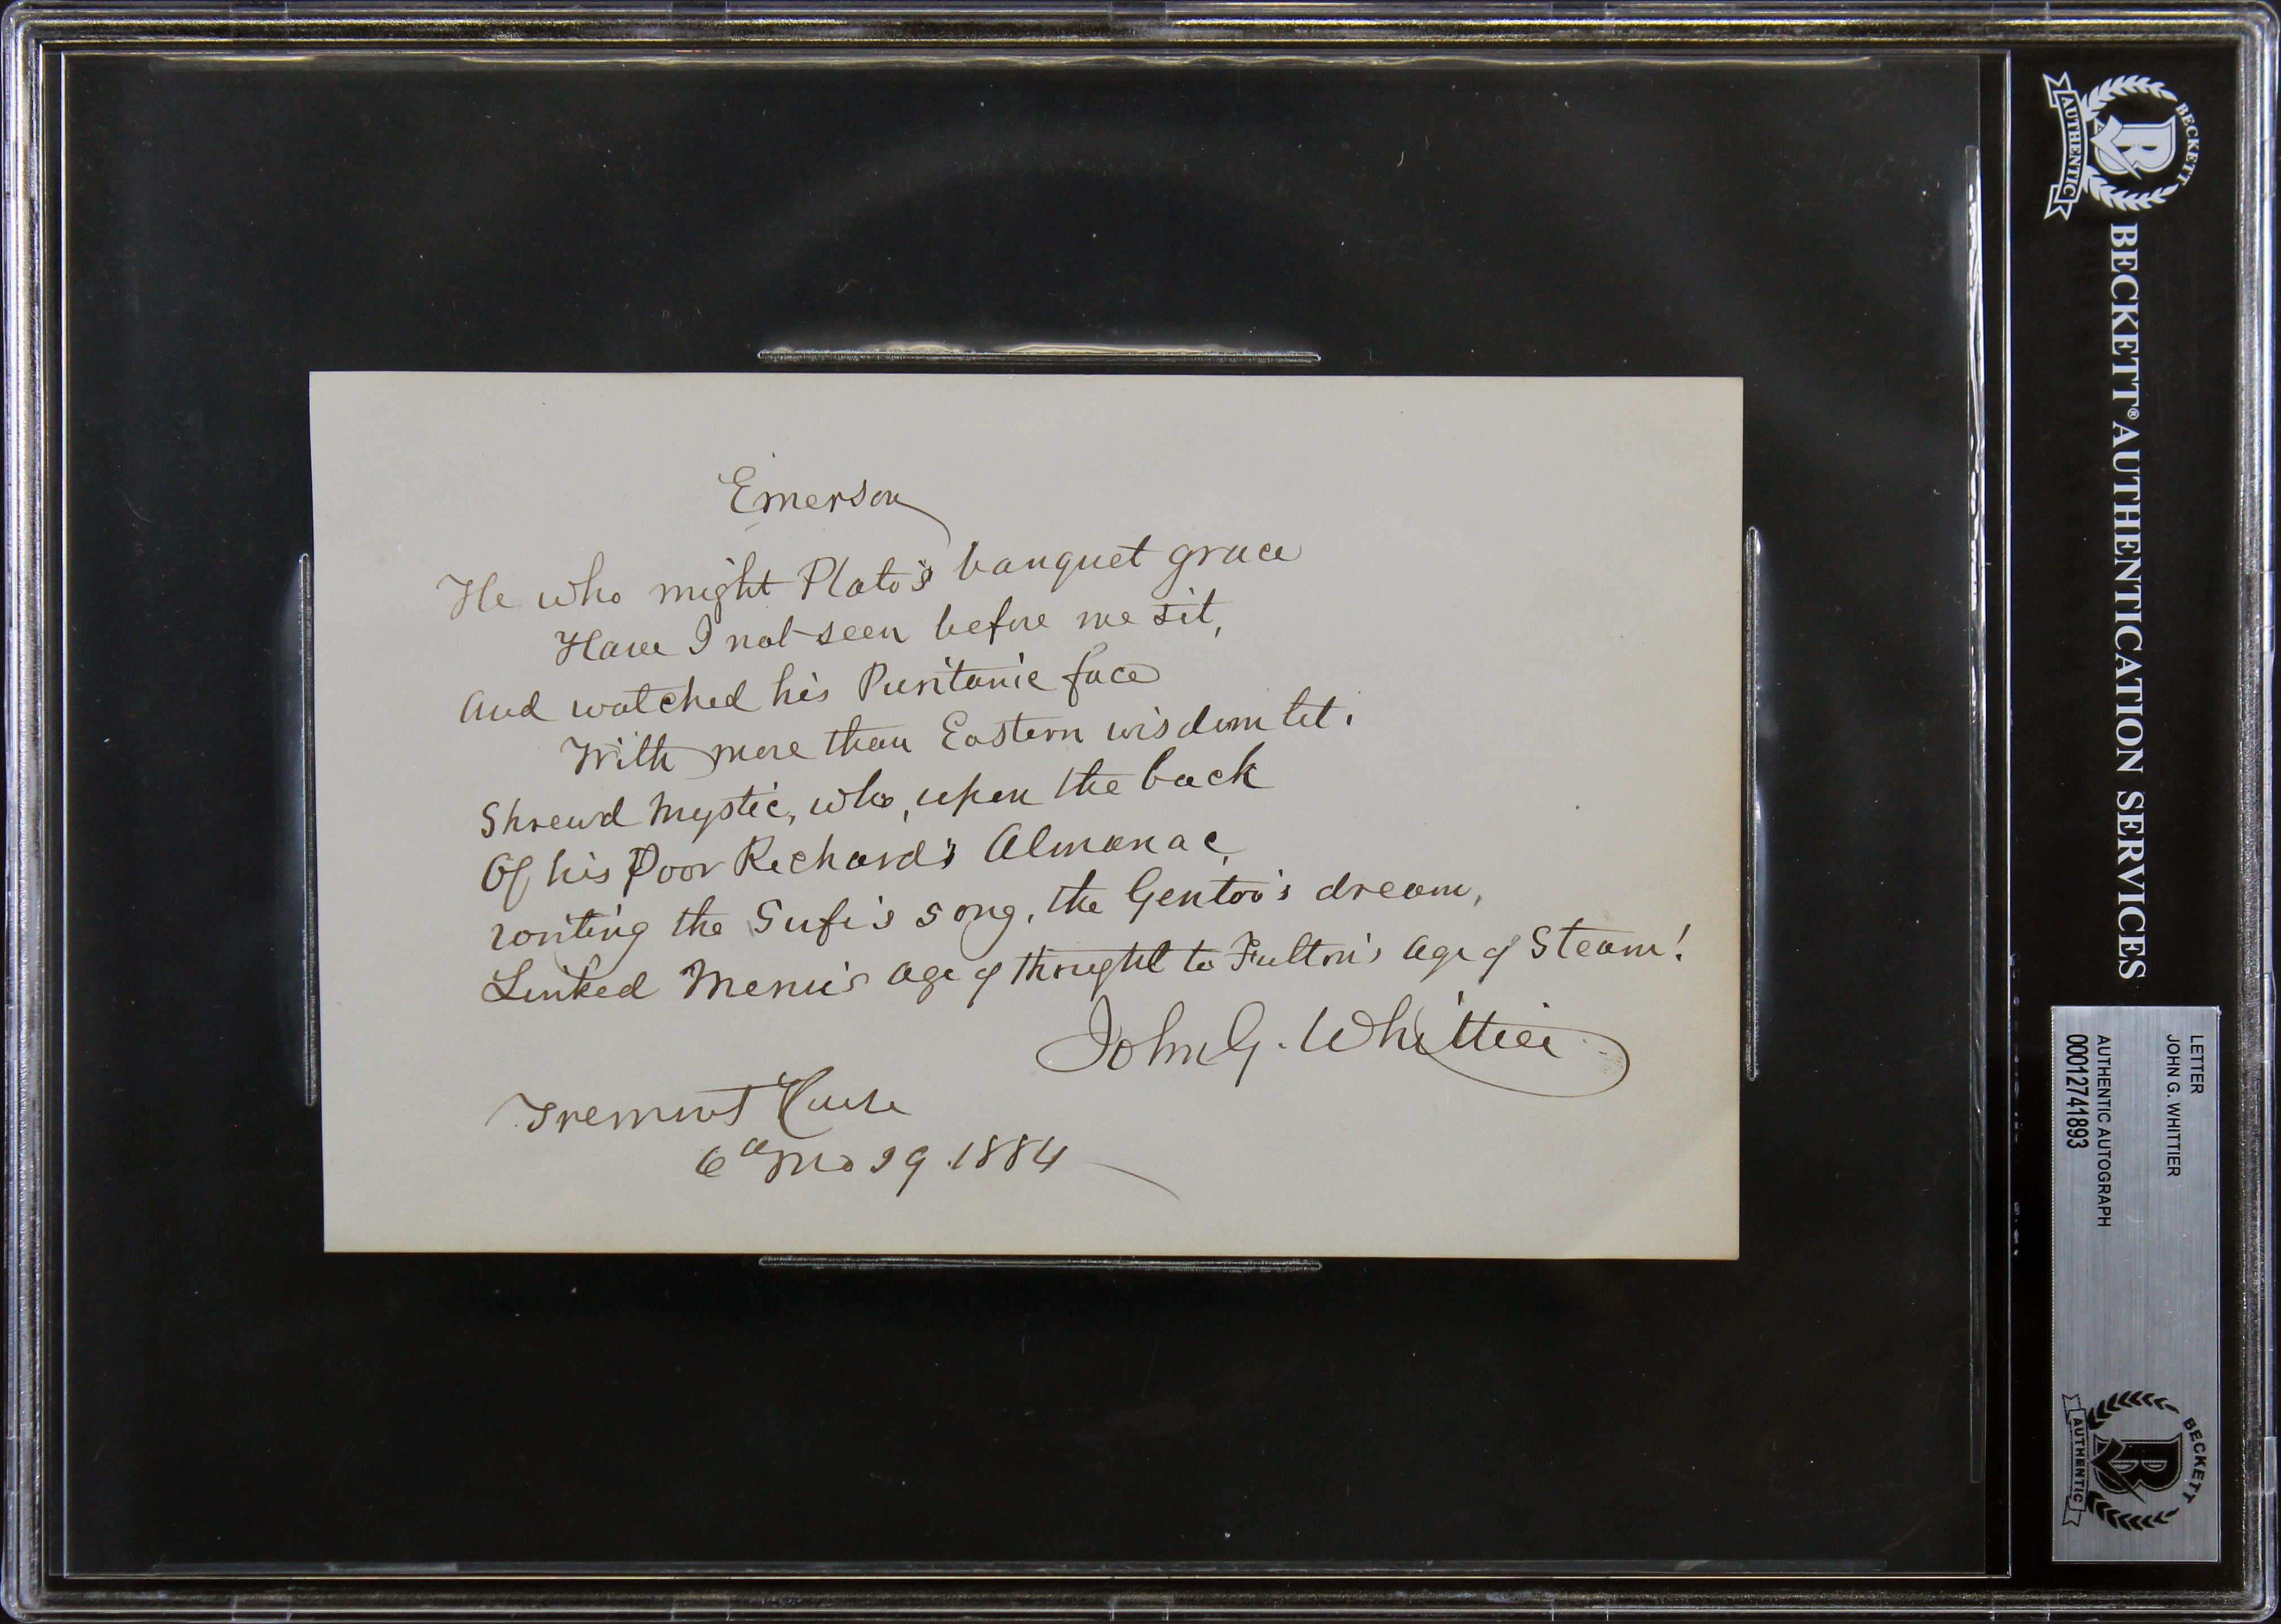 Emerson
He who might Plato's banquet grace
Have I not seen before me sit,
And watched his Puritanic face
With more than Eastern wisdom lit.
Shrewd mystic, who, upon the back
Of his Poor Richard's Almanac,
writing the Sufi's song, the Gentoo's dream,
Linked Menu's age of thought to Fulton's age of Steam!
John G. Whittier
Tremont House
6th Mo 29. 1884
BECKETT
AUTHENTIC
BECKETT® AUTHENTICATION SERVICES
LETTER
JOHN G. WHITTIER
AUTHENTIC AUTOGRAPH
00012741893
BECKETT
AUTHENTIC